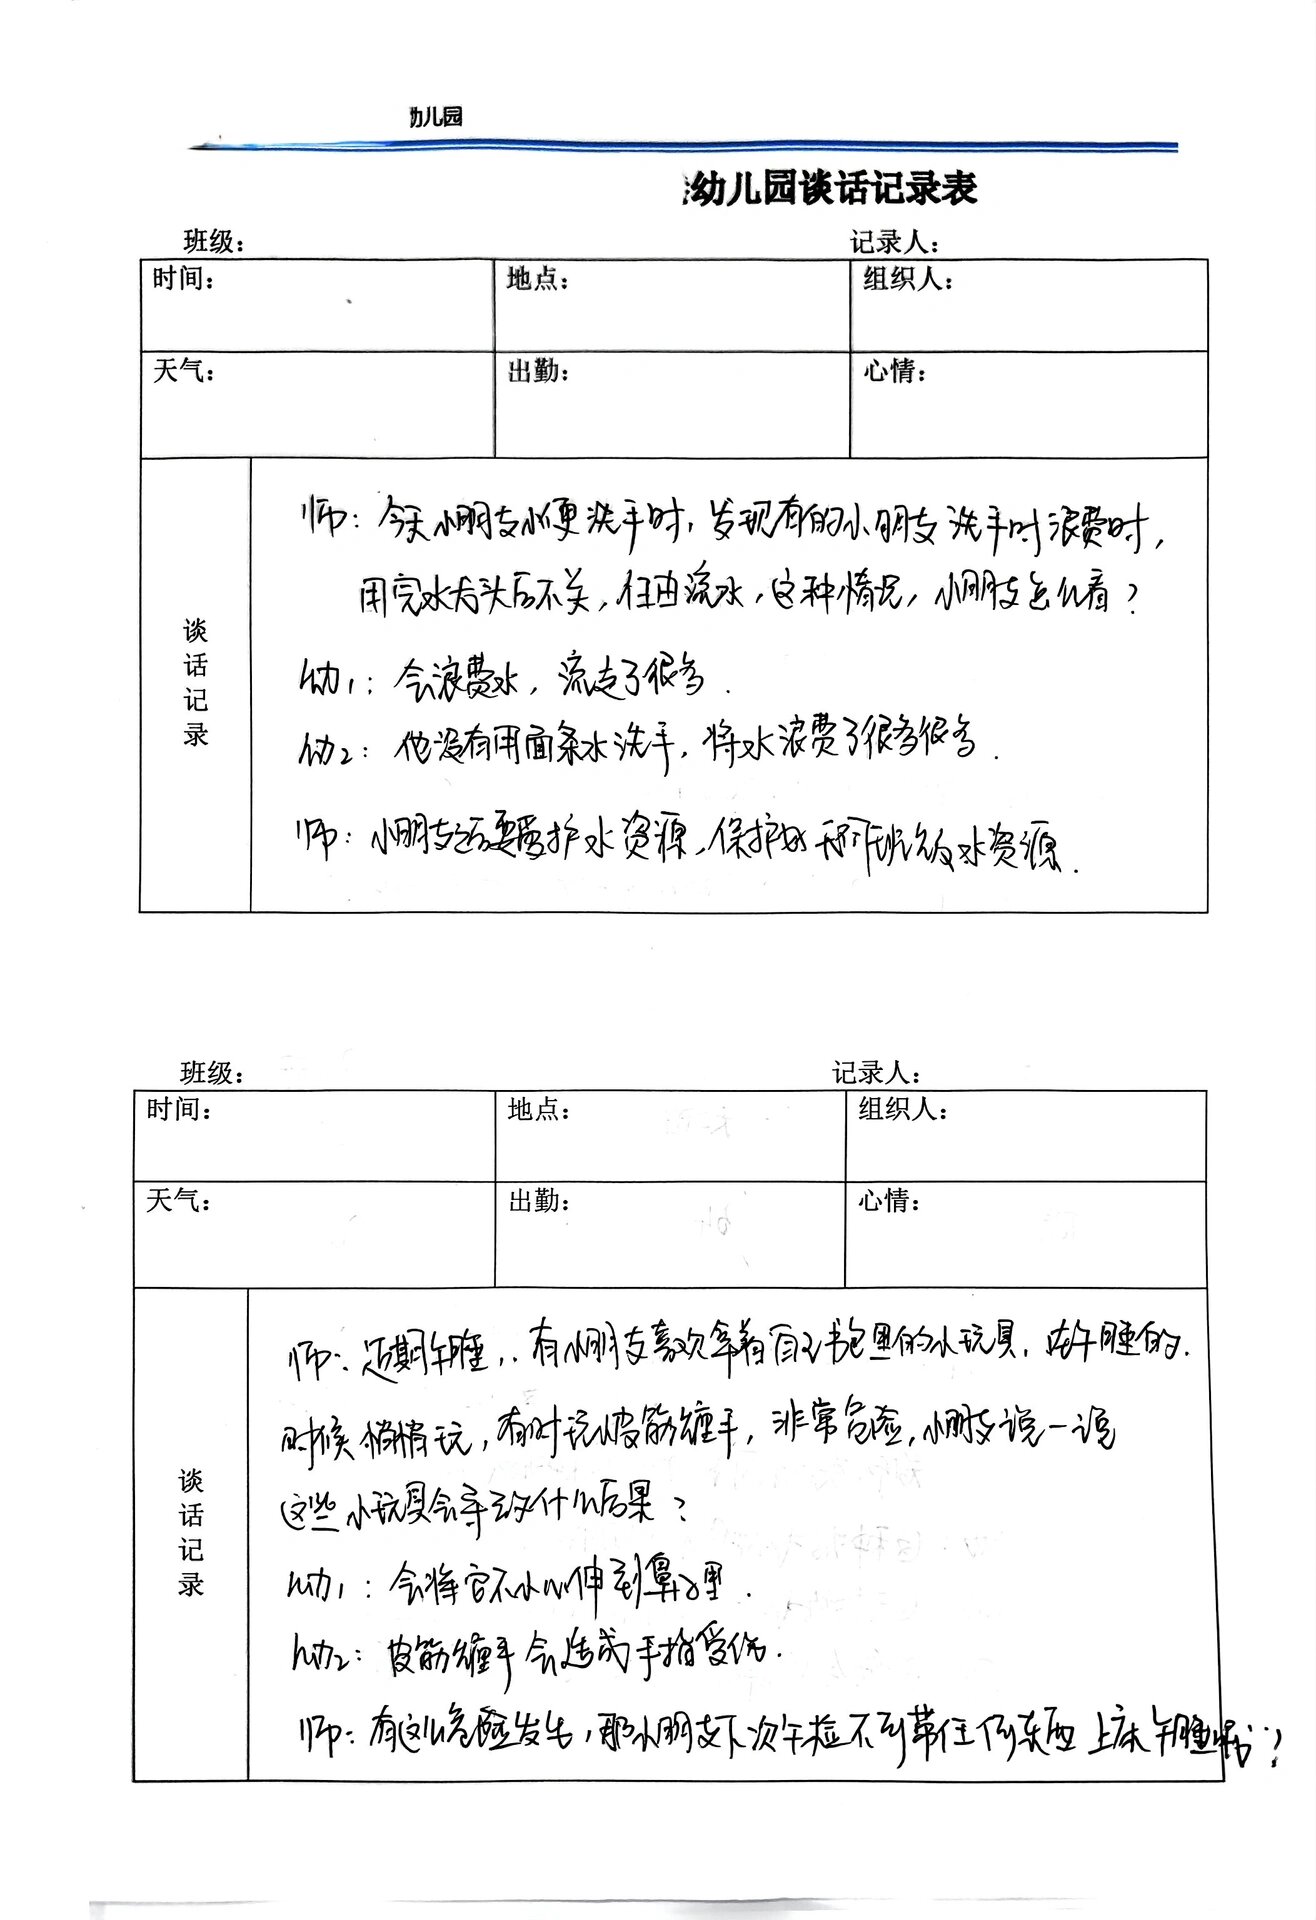 幼儿园
幼儿园谈话记录表
班级： 记录人：
时间： 地点： 组织人：
天气： 出勤： 心情：
谈话记录
师：今天小朋友小便洗手时，发现有的小朋友洗手时浪费时，
用完水龙头后不关，任由流水，这种情况，小朋友怎么看？
幼1：会浪费水，流走了很多．
幼2：他没有用面条水洗手，将水浪费了很多很多．
师：小朋友还要爱护水资源，保护水资源．
班级： 记录人：
时间： 地点： 组织人：
天气： 出勤： 心情：
谈话记录
师：近期午睡，有小朋友喜欢拿着自己书包里的小玩具，在午睡的
时候悄悄玩，有时玩皮筋缠手，非常危险，小朋友说一说
这些小玩具会导致什么后果？
幼1：会将它不小心伸到鼻子里．
幼2：皮筋缠手会造成手指受伤．
师：有这么危险发生，那小朋友下次午检不到带任何东西上床午睡？